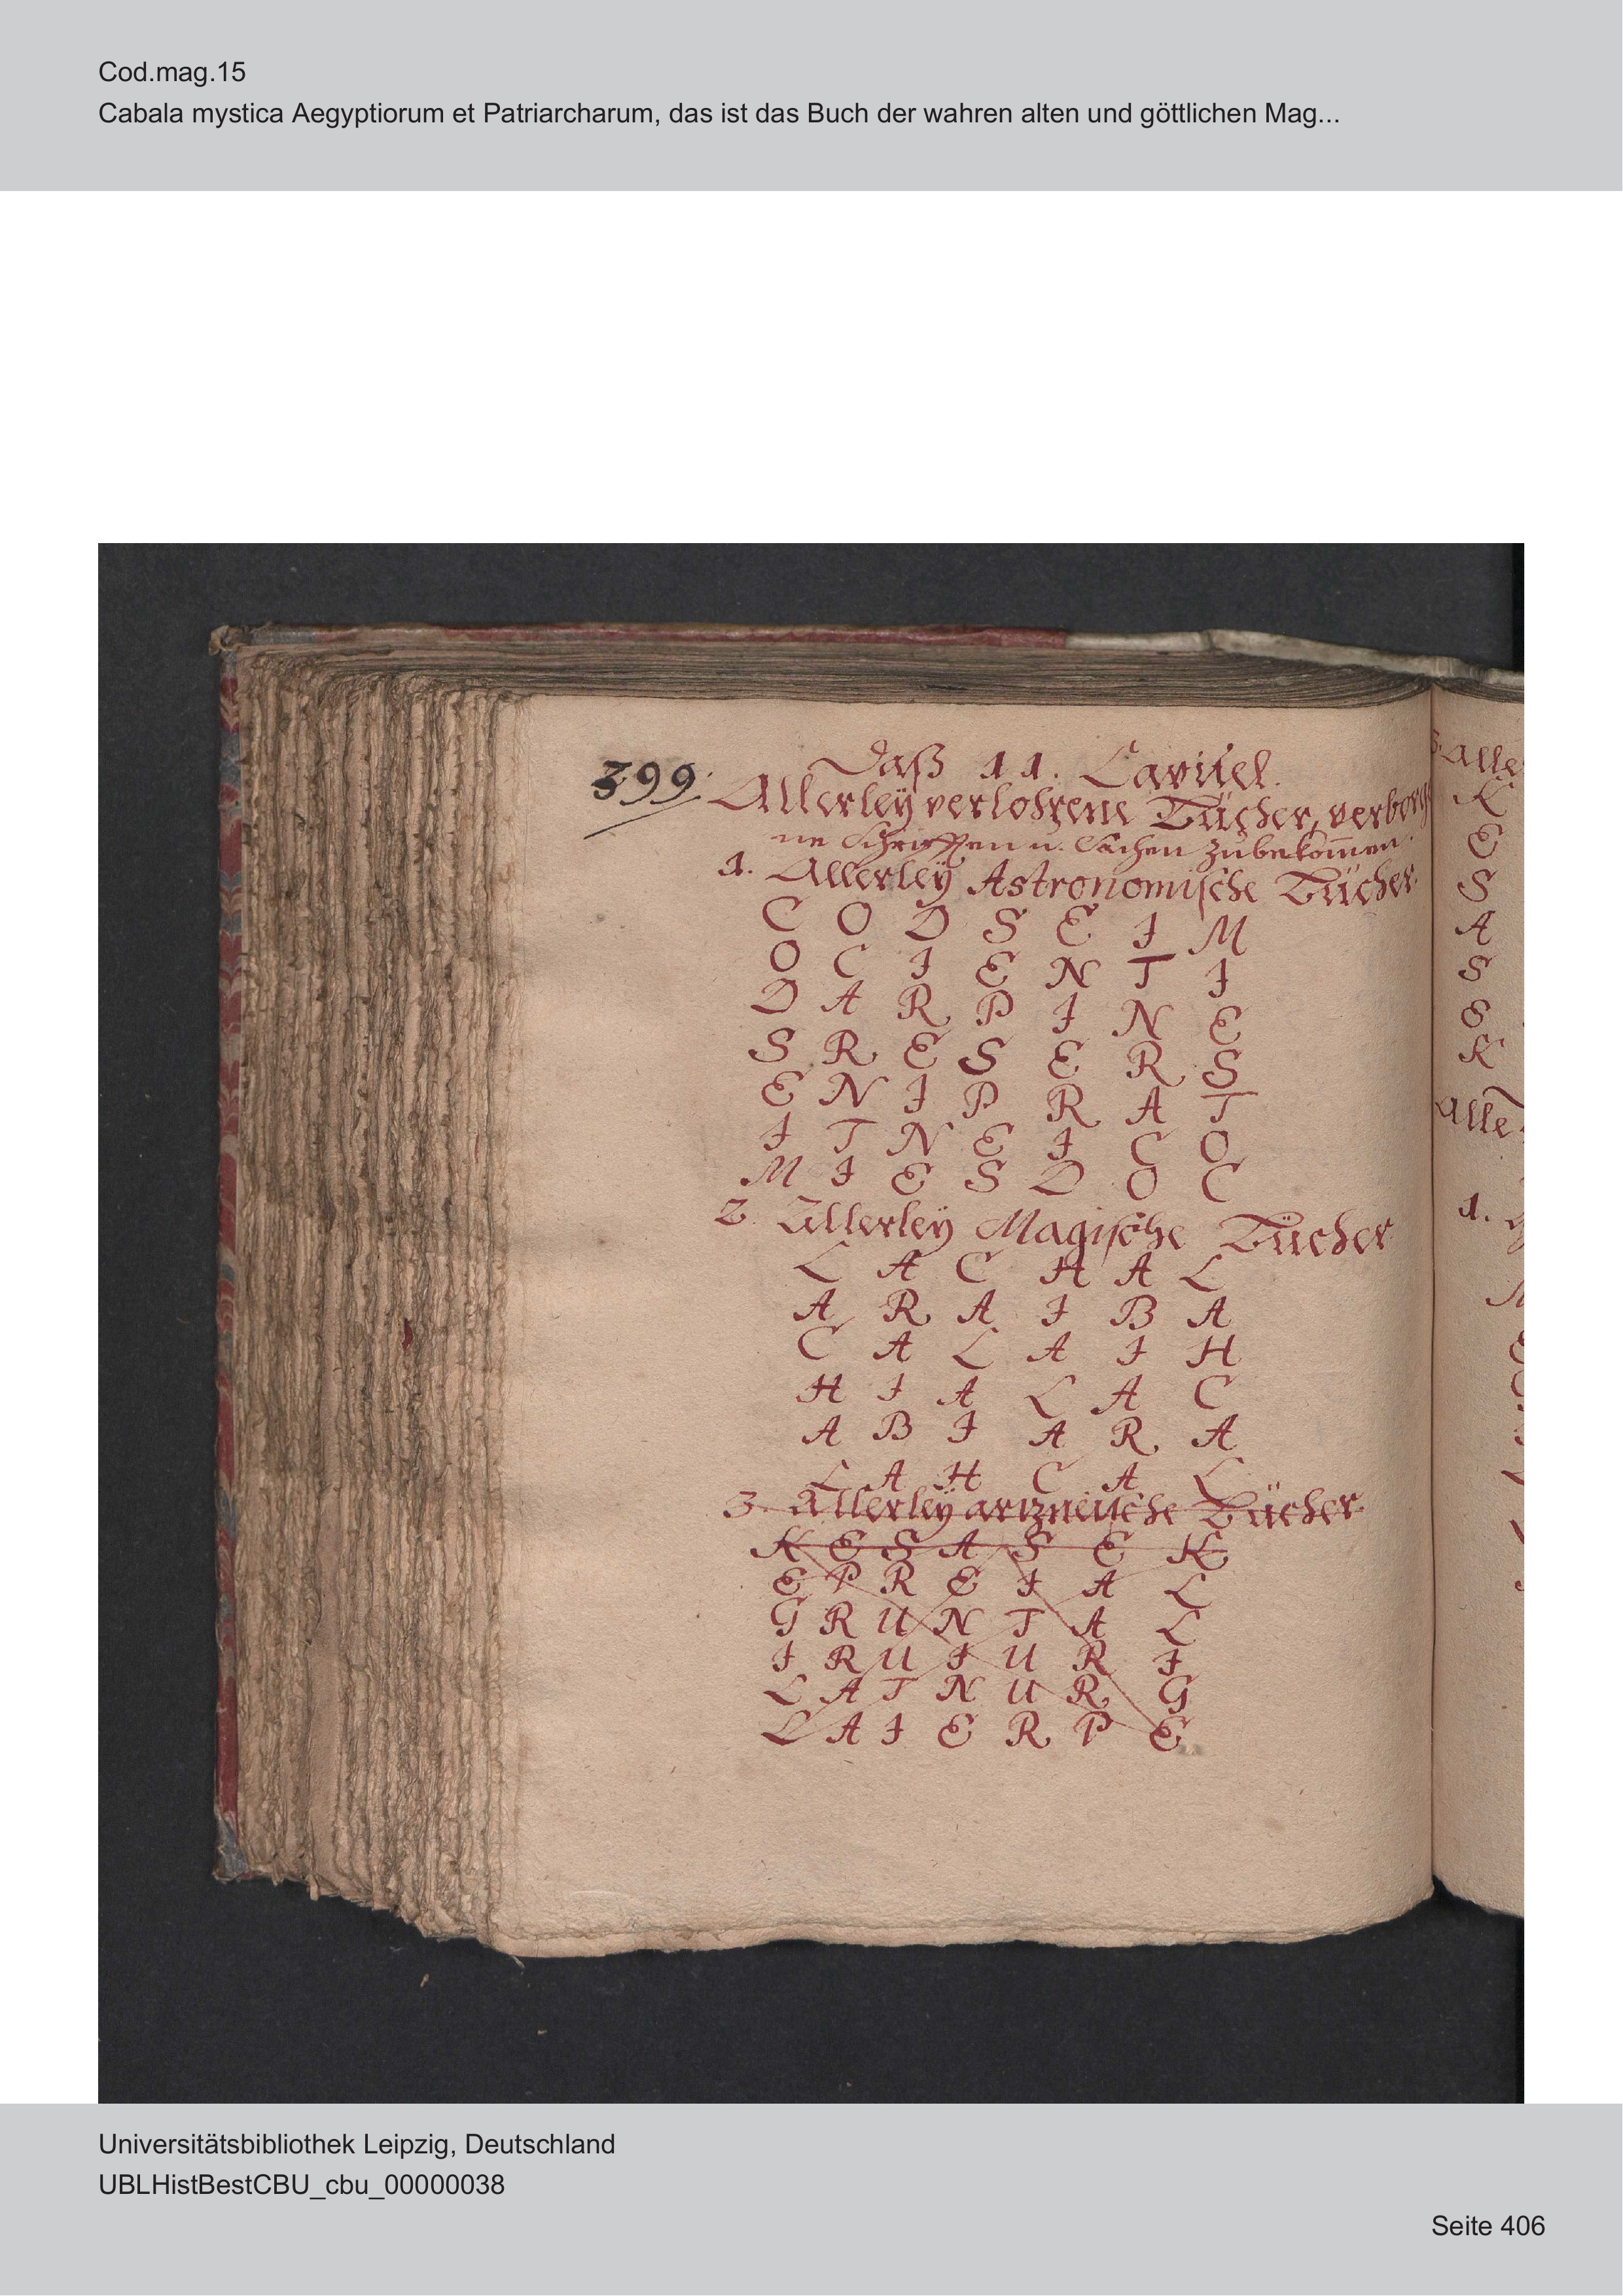 Cod.mag.15
Cabala mystica Aegyptiorum et Patriarcharum, das ist das Buch der wahren alten und göttlichen Mag...
399.
Daß 11. Capitel.
Allerleÿ verlohrene Bücher, verborge
ne Schrifften u. Sachen zubekom̄en.
1. Allerleÿ Astronomische Bücher.
C O D S E I M
O C I E N T I
D A R P I N E
S R E S E R S
E N I P R A T
I T N E I C O
M I E S D O C
2. Allerleÿ Magische Bücher
L A C H A L
A R A I B A
C A L A I H
H I A L A C
A B I A R A
L A H C A L
3. Allerleÿ artzneische Bücher
K E S A S E K
E P R E I A L
G R U N T A L
I R U I U R I
L A T N U R G
L A I E R P E
3. Alle
K
E
S
A
S
E
K
Alle
1.
Universitätsbibliothek Leipzig, Deutschland
UBLHistBestCBU_cbu_00000038
Seite 406